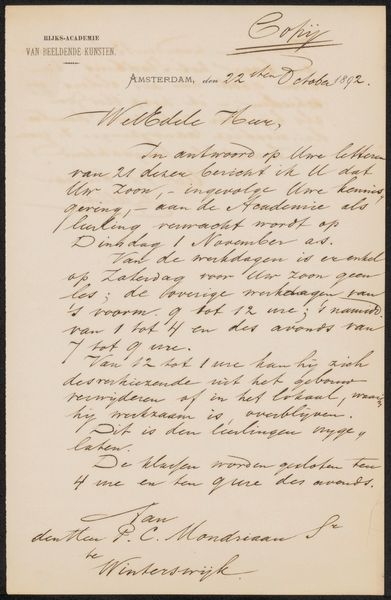 RIJKS-ACADEMIE
VAN BEELDENDE KUNSTEN.
Copij
AMSTERDAM, den 22sten October 1892.
WelEdele Heer,
In antwoord op Uwe letteren
van 21 dezer bericht ik U dat
Uw Zoon, - ingevolge Uwe kennis
geving, - aan de Academie als
leerling verwacht wordt op
Dinsdag 1 November a.s.
Van de werkdagen is er enkel
op Zaterdag voor Uw zoon geen
les; de overige werkdagen van
's voorm. 9 tot 12 ure; 's namidd.
van 1 tot 4 en des avonds van
7 tot 9 ure.
Van 12 tot 1 ure kan hij zich
desverkiezende uit het gebouw
verwijderen of in het lokaal, waarin
hij werkzaam is overblijven.
Dit is den leerlingen
laten.
De klassen worden gesloten ten
4 ure en ten 9 ure des avonds.
Aan
den Heer P. C. Mondriaan Sr
te
Winterswijk.